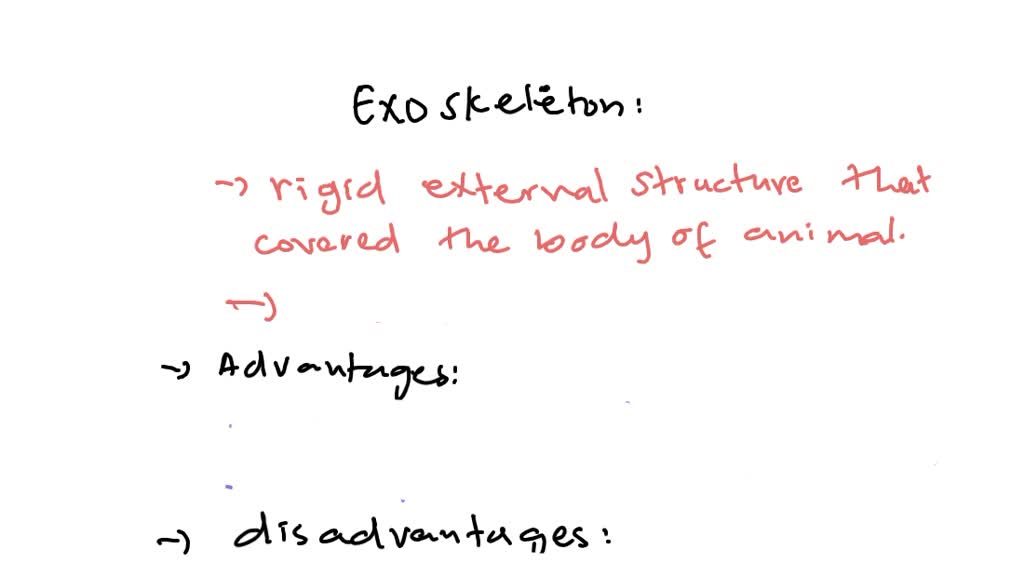 Exoskeleton:
→ rigid external structure that
covered the body of animal.
→
→ Advantages:
→ disadvantages: